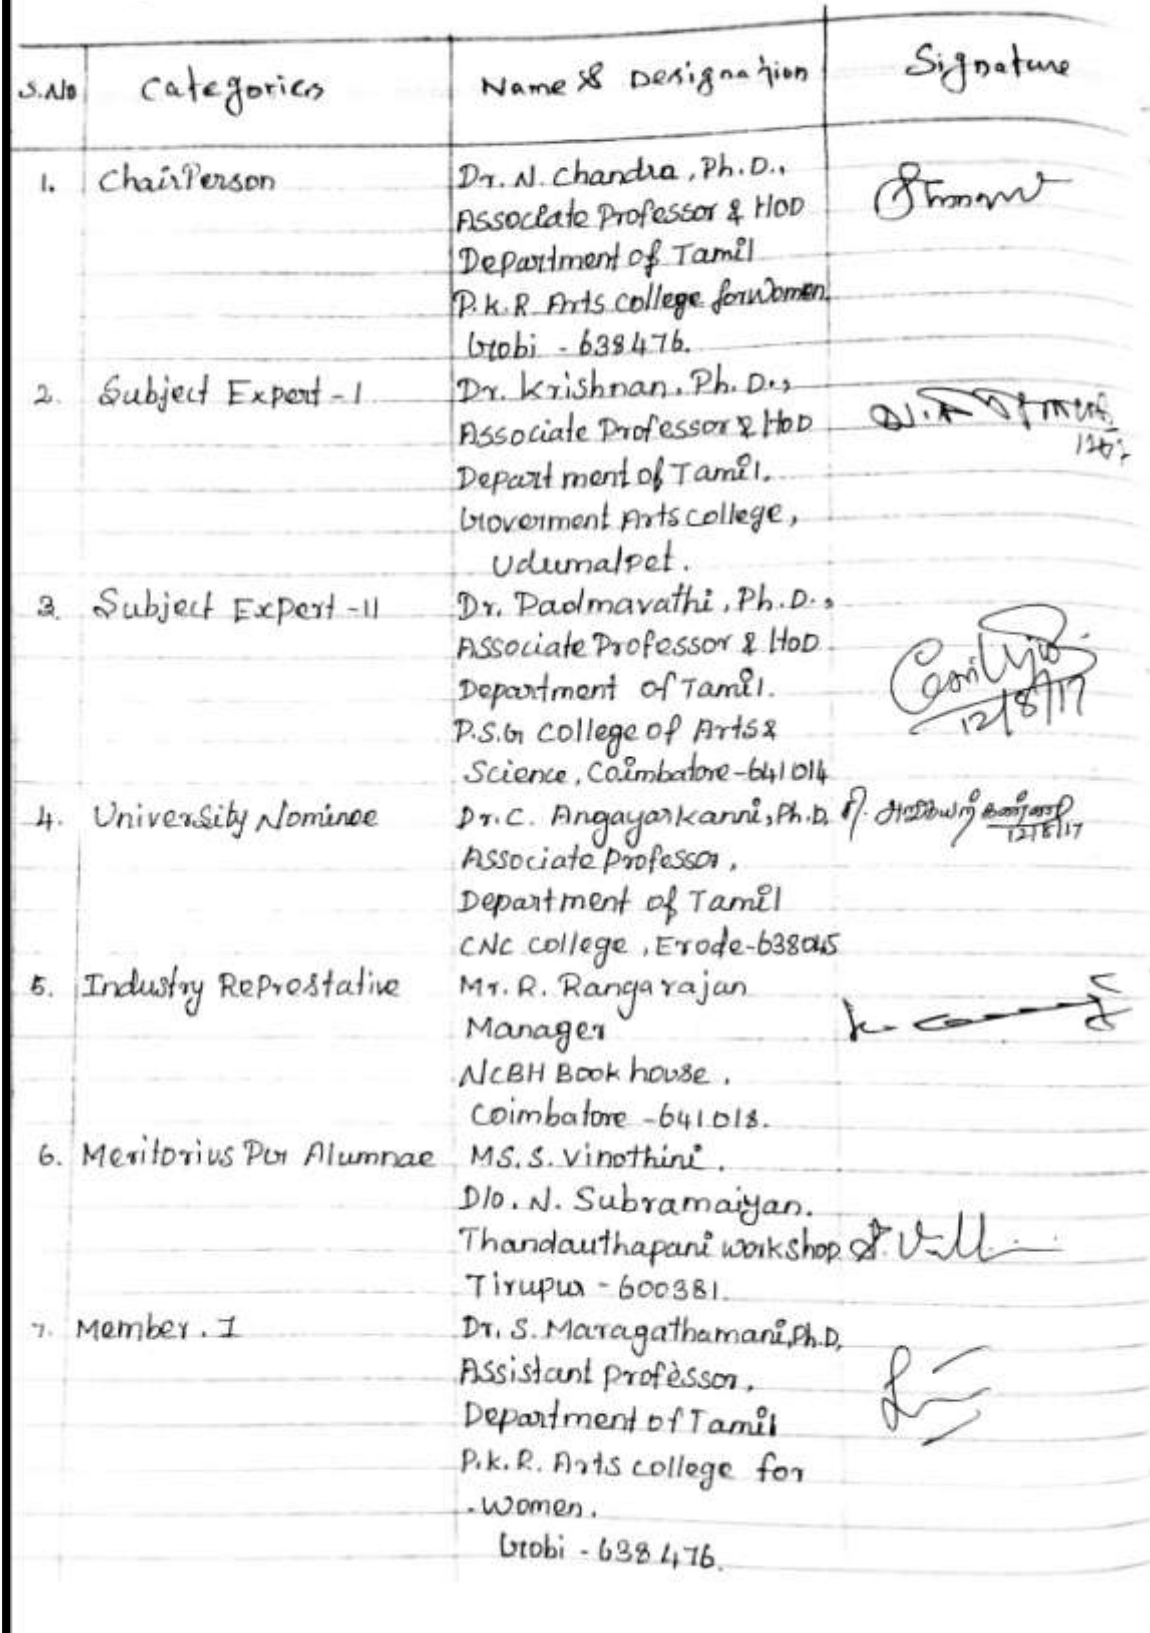 S.No Categories Name & Designation Signature
1. ChairPerson Dr. N. Chandra, Ph.D.,
Associate Professor & HOD
Department of Tamil
P.K.R Arts college for Women,
Gobi - 638476.
2. Subject Expert - I Dr. Krishnan, Ph.D.,
Associate Professor & HOD
Department of Tamil.
Goverment Arts college,
Udumalpet.
3. Subject Expert - II Dr. Padmavathi, Ph.D.,
Associate Professor & HOD
Department of Tamil.
P.S.G College of Arts &
Science, Coimbatore-641014
12/8/17
4. University Nominee Dr. C. Angayarkanni, Ph.D,
12/8/17
Associate Professor,
Department of Tamil
CNC College, Erode-638045
5. Industry Reprostative Mr. R. Rangarajan
Manager
NCBH Book house,
Coimbatore - 641018.
6. Meritorius Alumnae MS. S. Vinothini.
D/o. N. Subramaiyan.
Thandauthapani workshop
Tirupur - 600381.
7. Member. I Dr. S. Maragathamani, Ph.D,
Assistant professor,
Department of Tamil
P.K.R. Arts college for
Women.
Gobi - 638476.